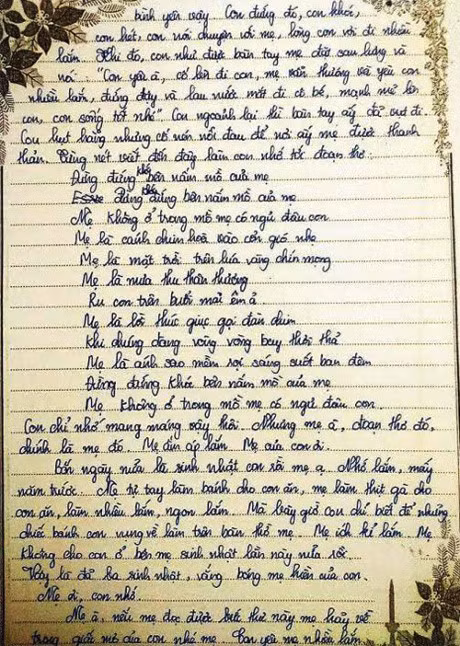 bình yên vậy. Con đứng đó, con khóc,
con hét, con nói chuyện với mẹ, lòng con vơi đi nhiều
lắm. Khi đó, con như được bàn tay mẹ đặt sau lưng và
nói: "Con yêu à, cố lên đi con, mẹ vẫn thương và yêu con
nhiều lắm, đứng dậy và lau nước mắt đi cô bé, mạnh mẽ lên
con, con sống tốt nhé" Con ngoảnh lại thì bàn tay ấy đã vụt đi.
Con hụt hẫng nhưng cố nén nỗi đau để nơi ấy mẹ được thanh
thản. Từng nét viết đến đây làm con nhớ tới đoạn thơ:
Đừng đứng khóc bên nấm mồ của mẹ
Đừng đứng khóc bên nấm mồ của mẹ
Mẹ không ở trong mồ mẹ có ngủ đâu con
Mẹ là cánh chim hoà vào cơn gió nhẹ
Mẹ là mặt trời trên lúa vàng chín mọng
Mẹ là mưa thu thân thương
Ru con trên buổi mai êm ả
Mẹ là lời thúc giục gọi đàn chim
Khi chúng đang vòng vòng bay thời thả
Mẹ là ánh sao mềm rọi sáng suốt ban đêm
Đừng đứng khóc bên nấm mồ của mẹ
Mẹ không ở trong mồ mẹ có ngủ đâu con.
Con chỉ nhớ mang máng vậy thôi. Nhưng mẹ à, đoạn thơ đó,
chính là mẹ đó. Mẹ ấm áp lắm. Mẹ của con ơi.
Bốn ngày nữa là sinh nhật con rồi mẹ ạ. Nhớ lắm, mấy
năm trước. Mẹ tự tay làm bánh cho con ăn, mẹ làm thịt gà cho
con ăn, làm nhiều lắm, ngon lắm. Mà bây giờ con chỉ biết để những
chiếc bánh con vụng về làm trên bàn thờ mẹ. Mẹ ích kỉ lắm. Mẹ
không cho con ở bên mẹ sinh nhật lần này nữa rồi.
Vậy là đã ba sinh nhật, vắng bóng mẹ hiền của con.
Mẹ ơi, con nhớ.
Mẹ à, nếu mẹ đọc được bức thư này mẹ hãy về
trong giấc mơ của con nhé mẹ. Con yêu mẹ nhiều lắm.